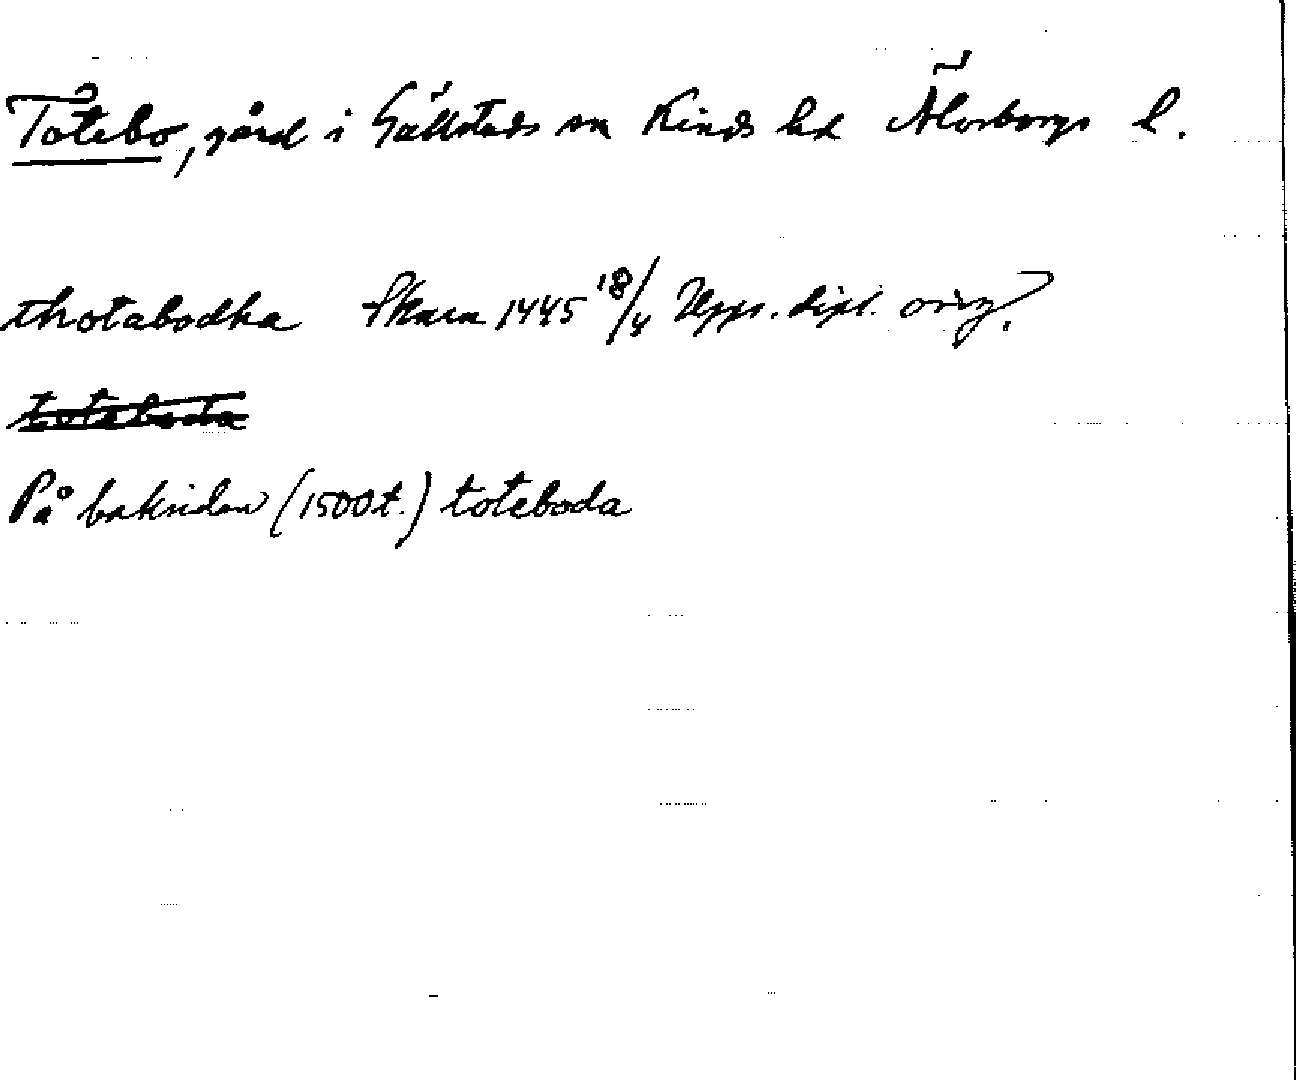 Totebo, gård i Gällstads sn Kinds hd Älvsborgs l.
thotabodha Skara 1445 18/4 Upps. dipl. orig?
toteboda
På baksidan (1500t.) toteboda